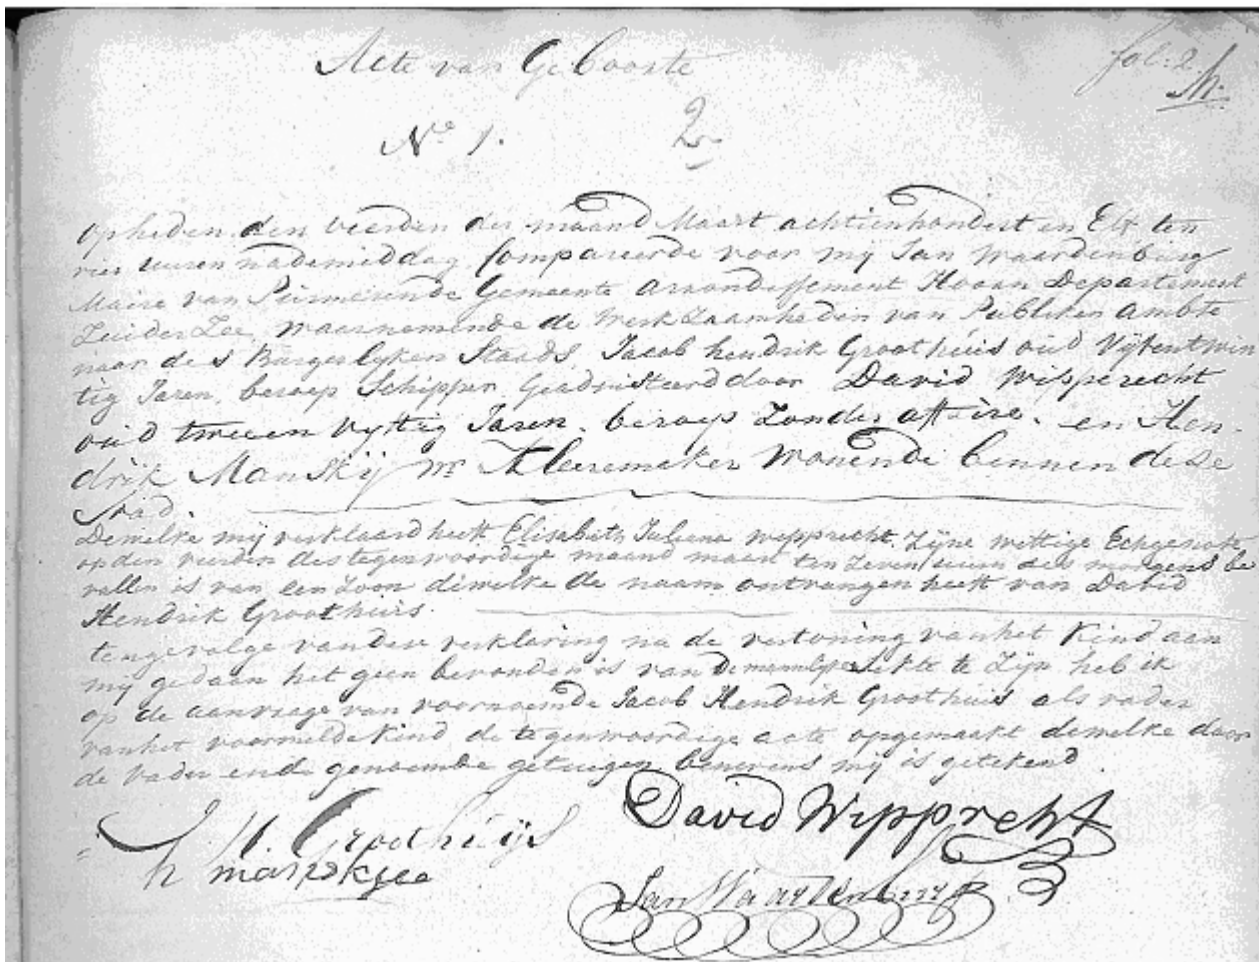 Acte van Geboorte
fol: 2
No 1.
2
op heden den vierden der maand Maart achtienhondert en Elf ten
vier uuren nademiddag Compareerde voor mij Jan Waardenburg
Maire van Purmerende Gemeente Arrondissement Hoorn Departement
Zuider Zee, waarnemende de Werkzaamheden van Publieken Ambte
naar des Burgerlyken Staads, Jacob hendrik Groothuis oud Vyfentwin
tig Jaren, beroep Schipper Geadsisteerd door David Wipperecht
oud tweeen vyftig Jaren. beroep Zonder affaire. en Hen-
drik Manskij Mr Kleeremaker Wonende binnen deze
Stad.
Dewelke mij verklaard heeft Elisabeth Juliana Wepprecht Zijne wettige Echgenote
op den vierden des tegenwoordige maand maart ten Zeven uuren des morgens be
vallen is van een Zoon dewelke de naam ontvangen heeft van David
Hendrik Groothuis.
tengevolge van dese verklaring na de vertoning van het Kind aan
mij gedaan het geen bevonden is van De mannelyke Sekte te Zyn heb ik
op de aanvrage van voornoemde Jacob Hendrik Groothuis als vader
van het voormelde Kind de tegenwoordige acte opgemaakt dewelke door
de vader en de genoemde getuigen benevens mij is getekend
David Wipprecht
J H Groothuijs
h
Jan Waardenburg